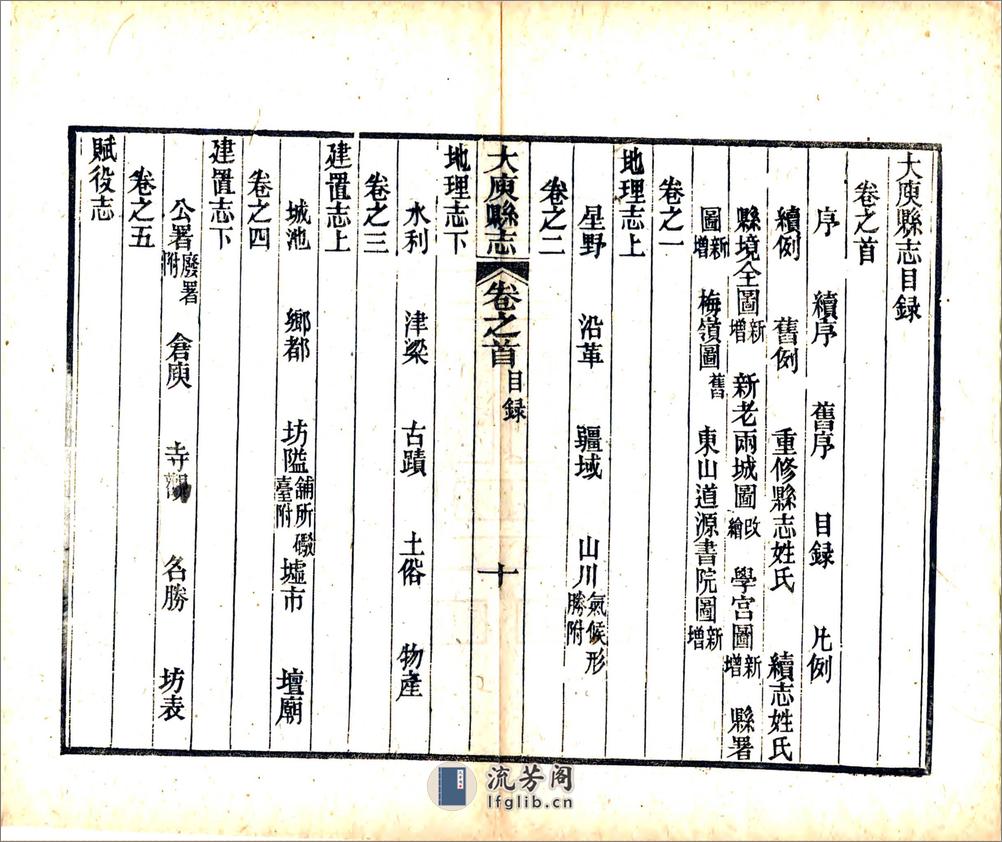 大庾縣志目録
卷之首
序 續序 舊序 目録 凡例
續例 舊例 重修縣志姓氏 續志姓氏
縣境全圖新增 新老兩城圖改繪 學宮圖新增 縣署
圖新增 梅嶺圖舊 東山道源書院圖新增
卷之一
地理志上
星野 沿革 疆域 山川氣候形勝附
卷之二
大庾縣志 卷之首 目録 十
地理志下
水利 津梁 古蹟 土俗 物産
卷之三
建置志上
城池 鄉都 坊隘舖所礮臺附 墟市 壇廟
卷之四
建置志下
公署廢署附 倉庾 寺觀 名勝 坊表
卷之五
賦役志
流芳阁
lfglib.cn